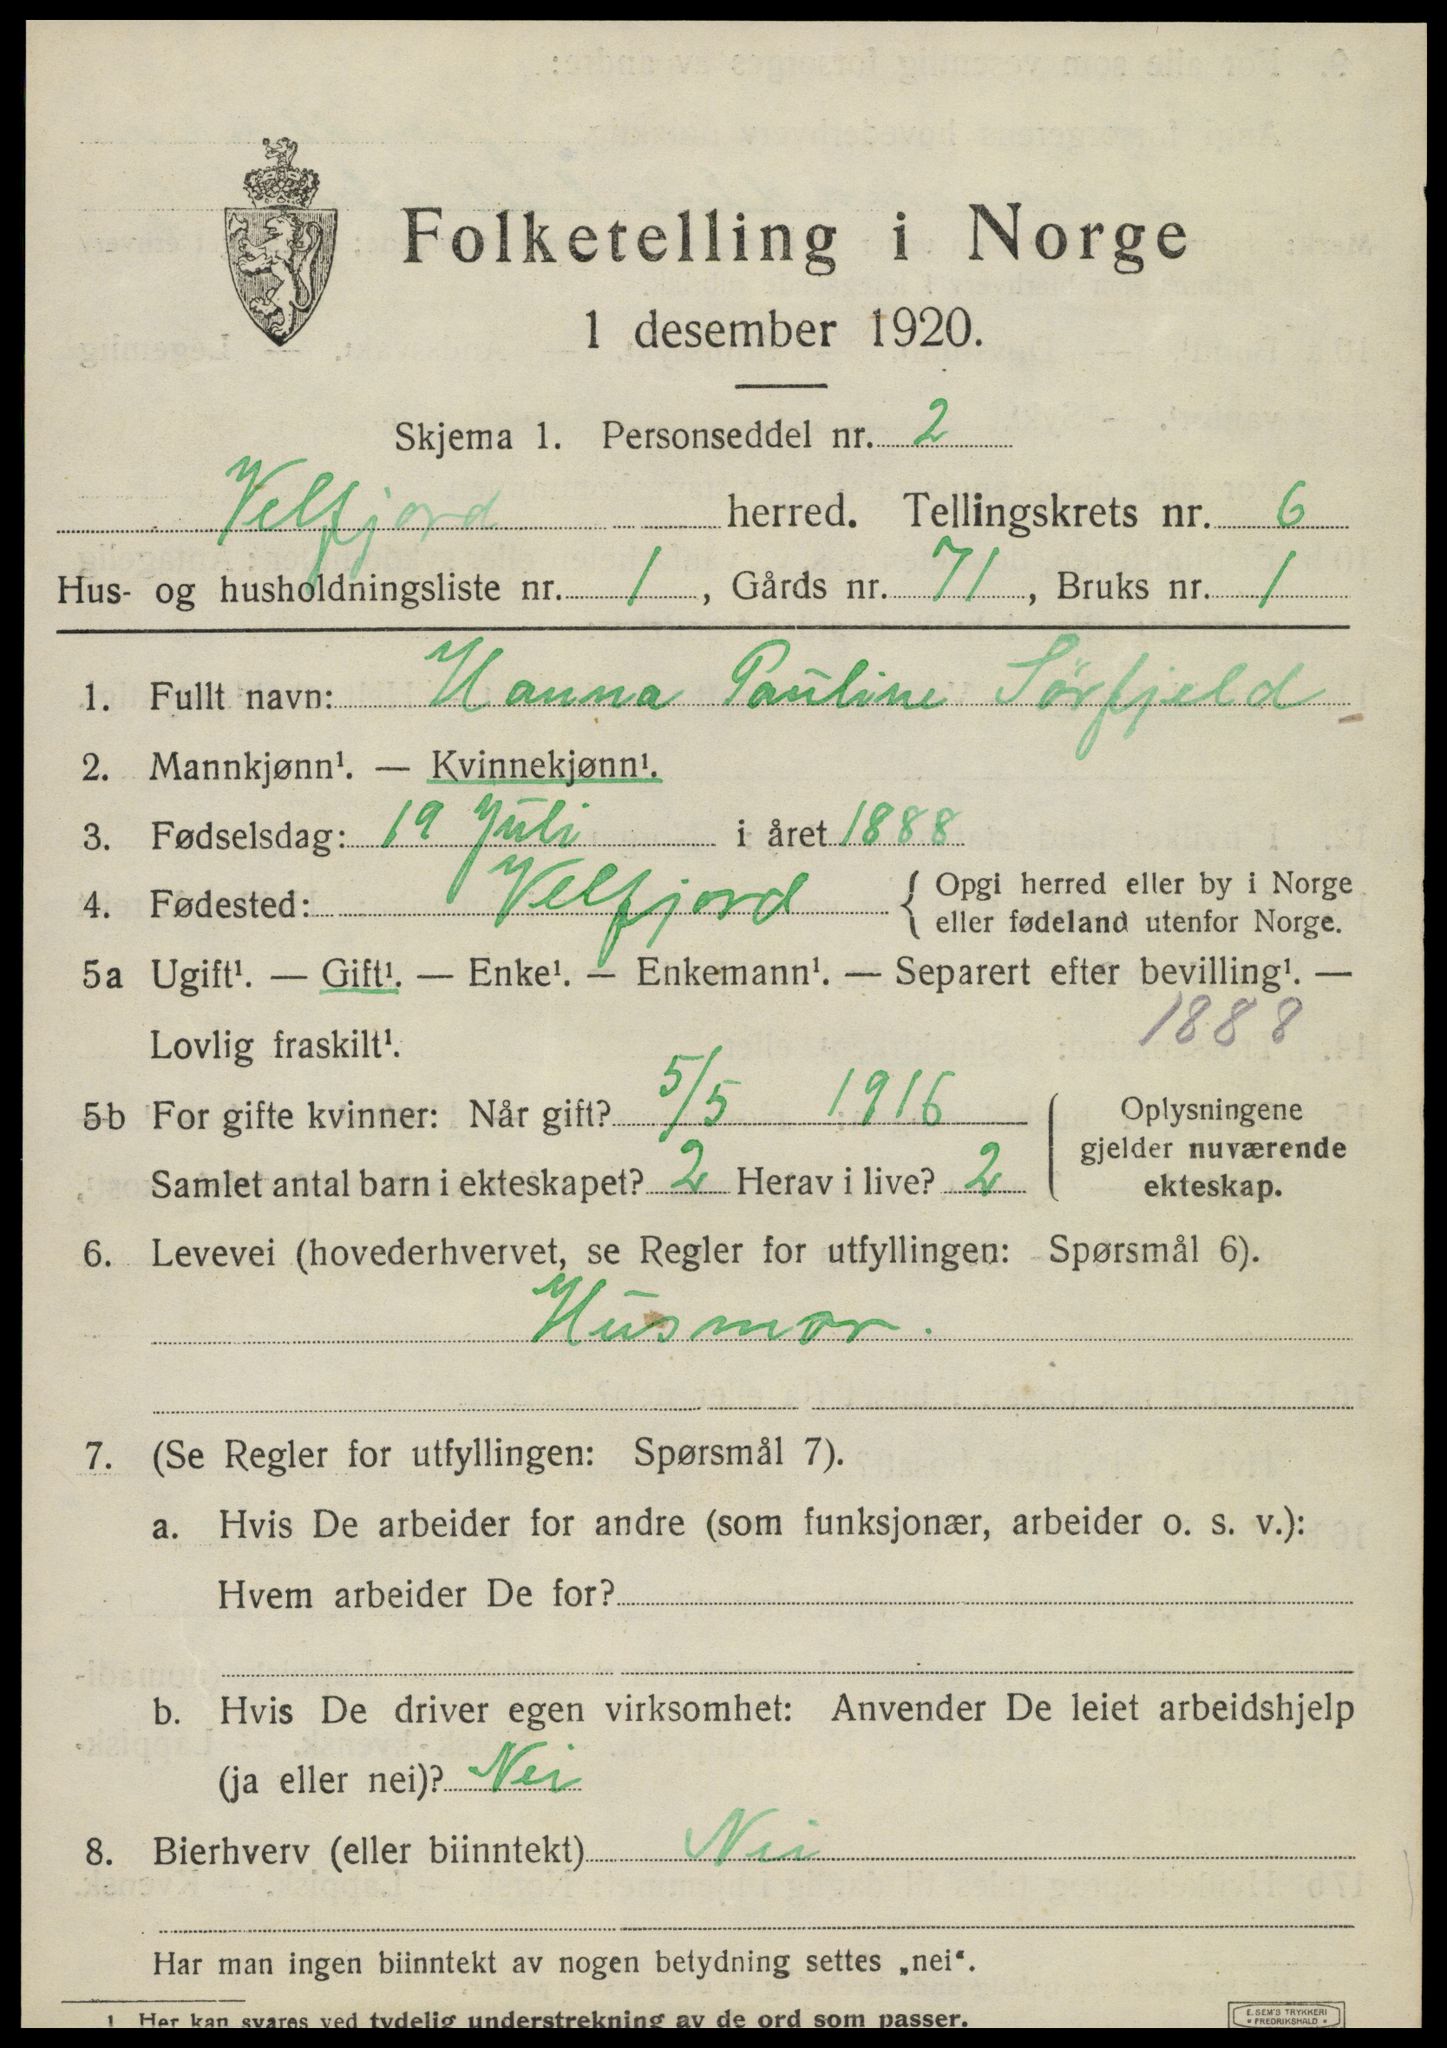 Folketelling i Norge
1 desember 1920.
Skjema 1. Personseddel nr. 2
Velfjord herred. Tellingskrets nr. 6
Hus- og husholdningsliste nr. 1, Gårds nr. 71, Bruks nr. 1
1. Fullt navn: Hanna Pauline Sörfjeld
2. Mannkjønn¹. — Kvinnekjønn¹.
3. Fødselsdag: 19 Juli i året 1888
4. Fødested: Velfjord { Opgi herred eller by i Norge
eller fødeland utenfor Norge.
5a Ugift¹. — Gift¹. — Enke¹. — Enkemann¹. — Separert efter bevilling¹. —
Lovlig fraskilt¹. 1888
5b For gifte kvinner: Når gift? 5/5 1916
Samlet antal barn i ekteskapet? 2 Herav i live? 2
Oplysningene
gjelder nuværende
ekteskap.
6. Levevei (hovederhvervet, se Regler for utfyllingen: Spørsmål 6).
Husmor.
7. (Se Regler for utfyllingen: Spørsmål 7).
a. Hvis De arbeider for andre (som funksjonær, arbeider o. s. v.):
Hvem arbeider De for?
b. Hvis De driver egen virksomhet: Anvender De leiet arbeidshjelp
(ja eller nei)? Nei
8. Bierhverv (eller biinntekt) Nei
Har man ingen biinntekt av nogen betydning settes „nei“.
1 Her kan svares ved tydelig understrekning av de ord som passer.
E. SEM'S TRYKKERI
• FREDRIKSHALD •